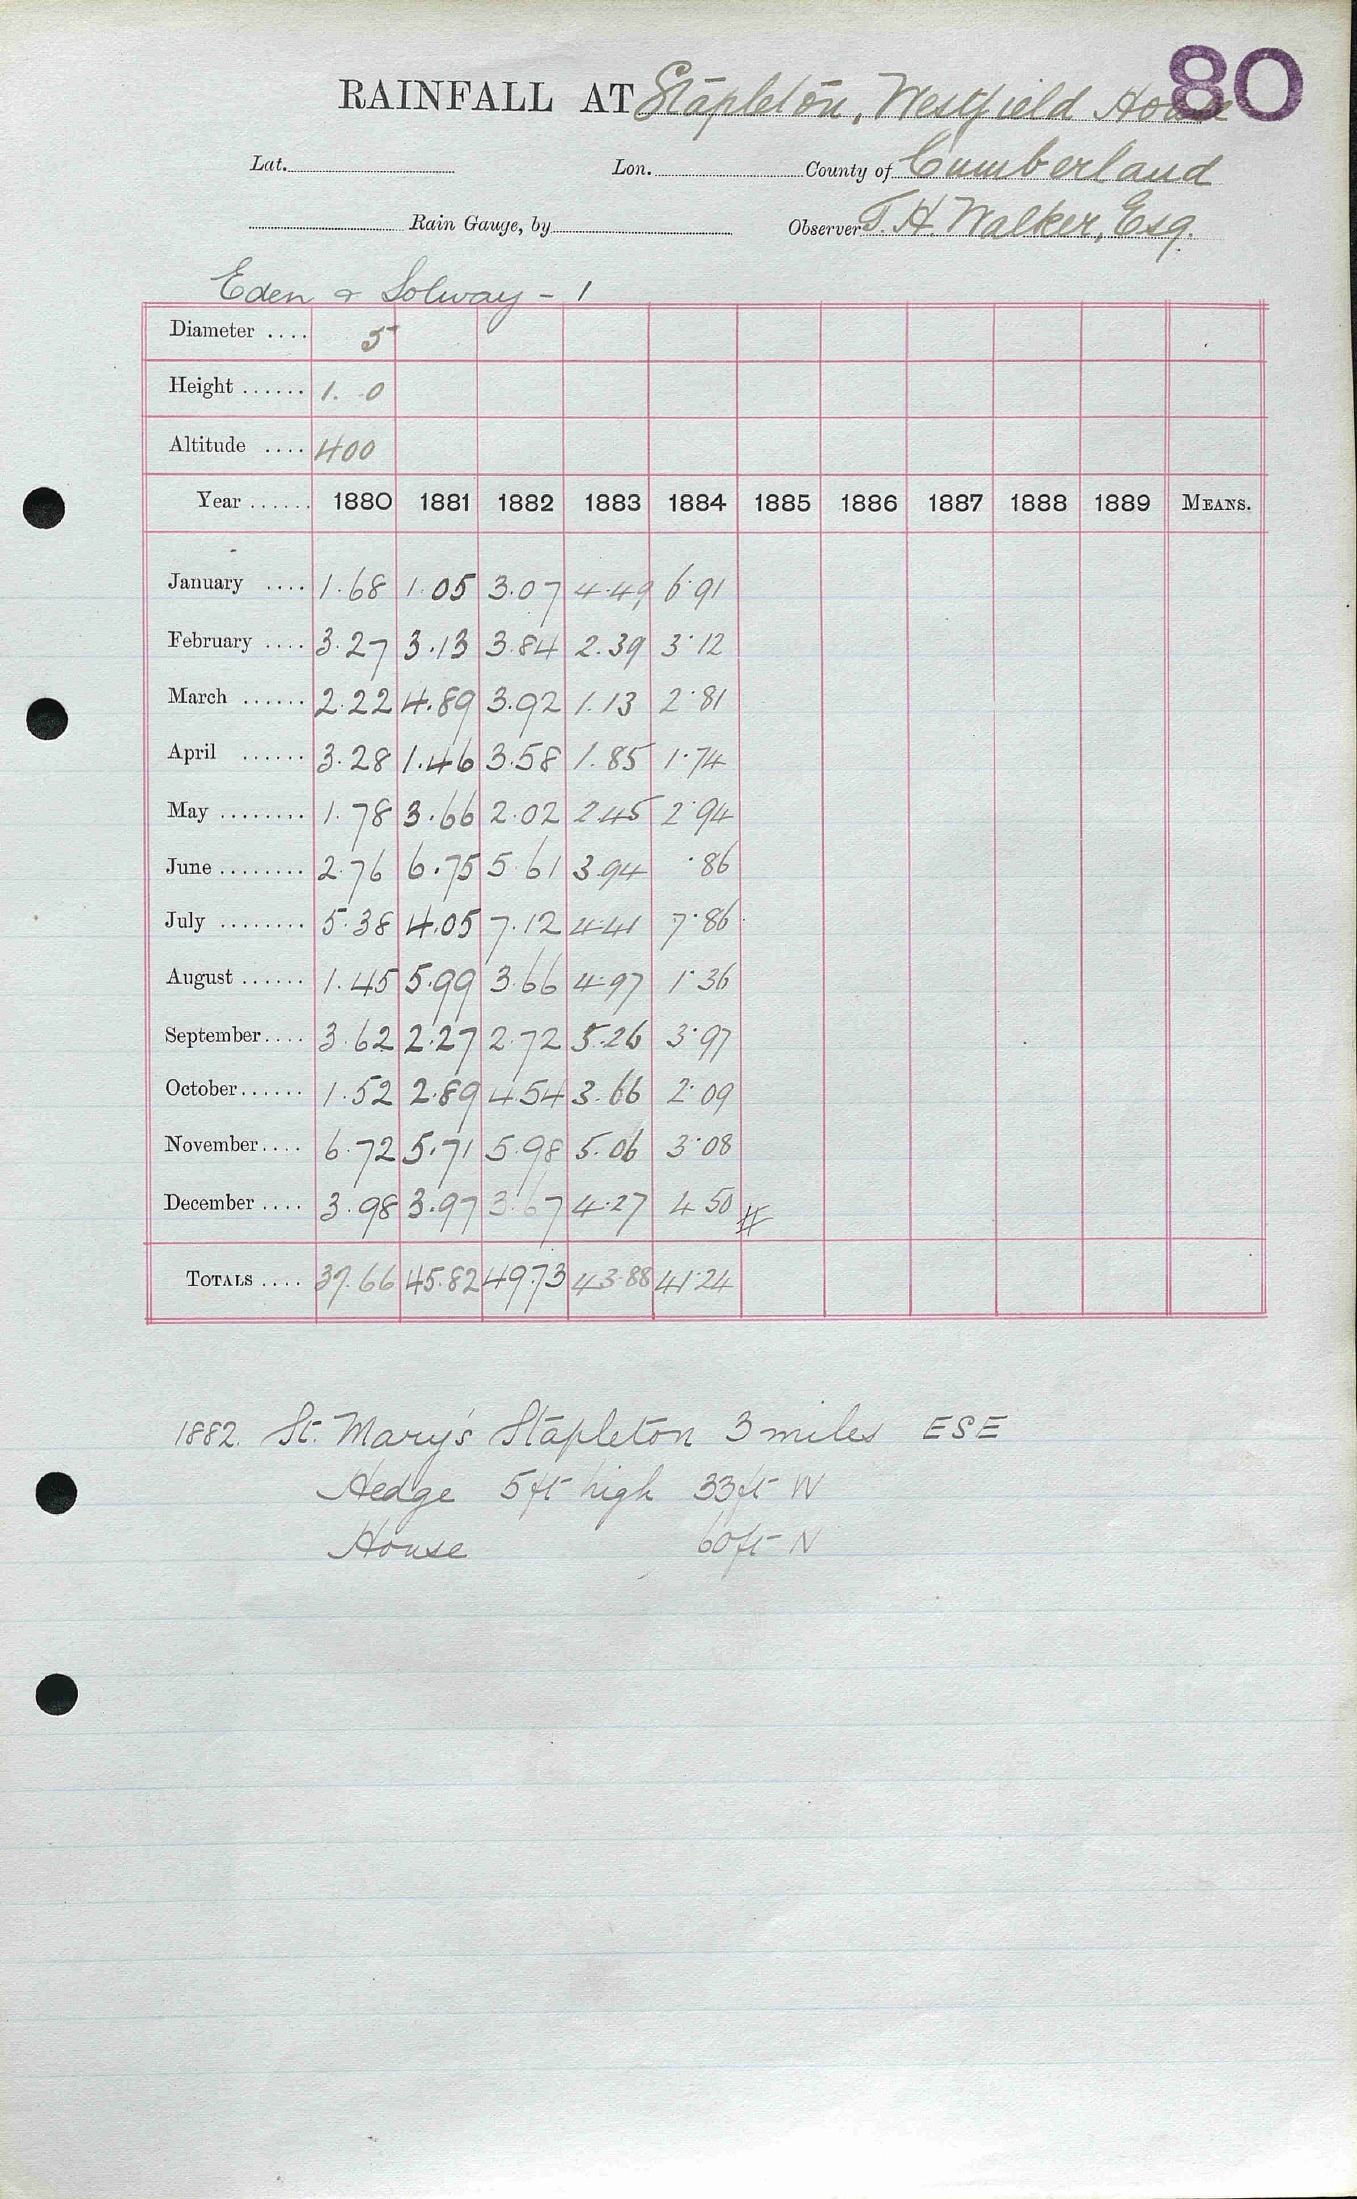 80
RAINFALL AT Stapleton, Westfield House
Lat. Lon. County of Cumberland
Rain Gauge, by Observer T. H. Walker, Esq.
Eden & Solway - 1
Diameter .... 5
Height ...... 1. 0
Altitude .... 400
Year ...... 1880 1881 1882 1883 1884 1885 1886 1887 1888 1889 MEANS.
January .... 1.68 1.05 3.07 4.49 6.91
February .... 3.27 3.13 3.84 2.39 3.12
March ...... 2.22 4.89 3.92 1.13 2.81
April ...... 3.28 1.46 3.58 1.85 1.74
May ........ 1.78 3.66 2.02 2.45 2.94
June ........ 2.76 6.75 5.61 3.94 .86
July ........ 5.38 4.05 7.12 4.41 7.86
August ...... 1.45 5.99 3.66 4.97 1.36
September .... 3.62 2.27 2.72 5.26 3.97
October ...... 1.52 2.89 4.54 3.66 2.09
November .... 6.72 5.71 5.98 5.06 3.08
December .... 3.98 3.97 3.67 4.27 4.50 #
TOTALS .... 37.66 45.82 49.73 43.88 41.24
1882. St. Mary's Stapleton 3 miles ESE
Hedge 5ft high 33ft W
House 60ft N